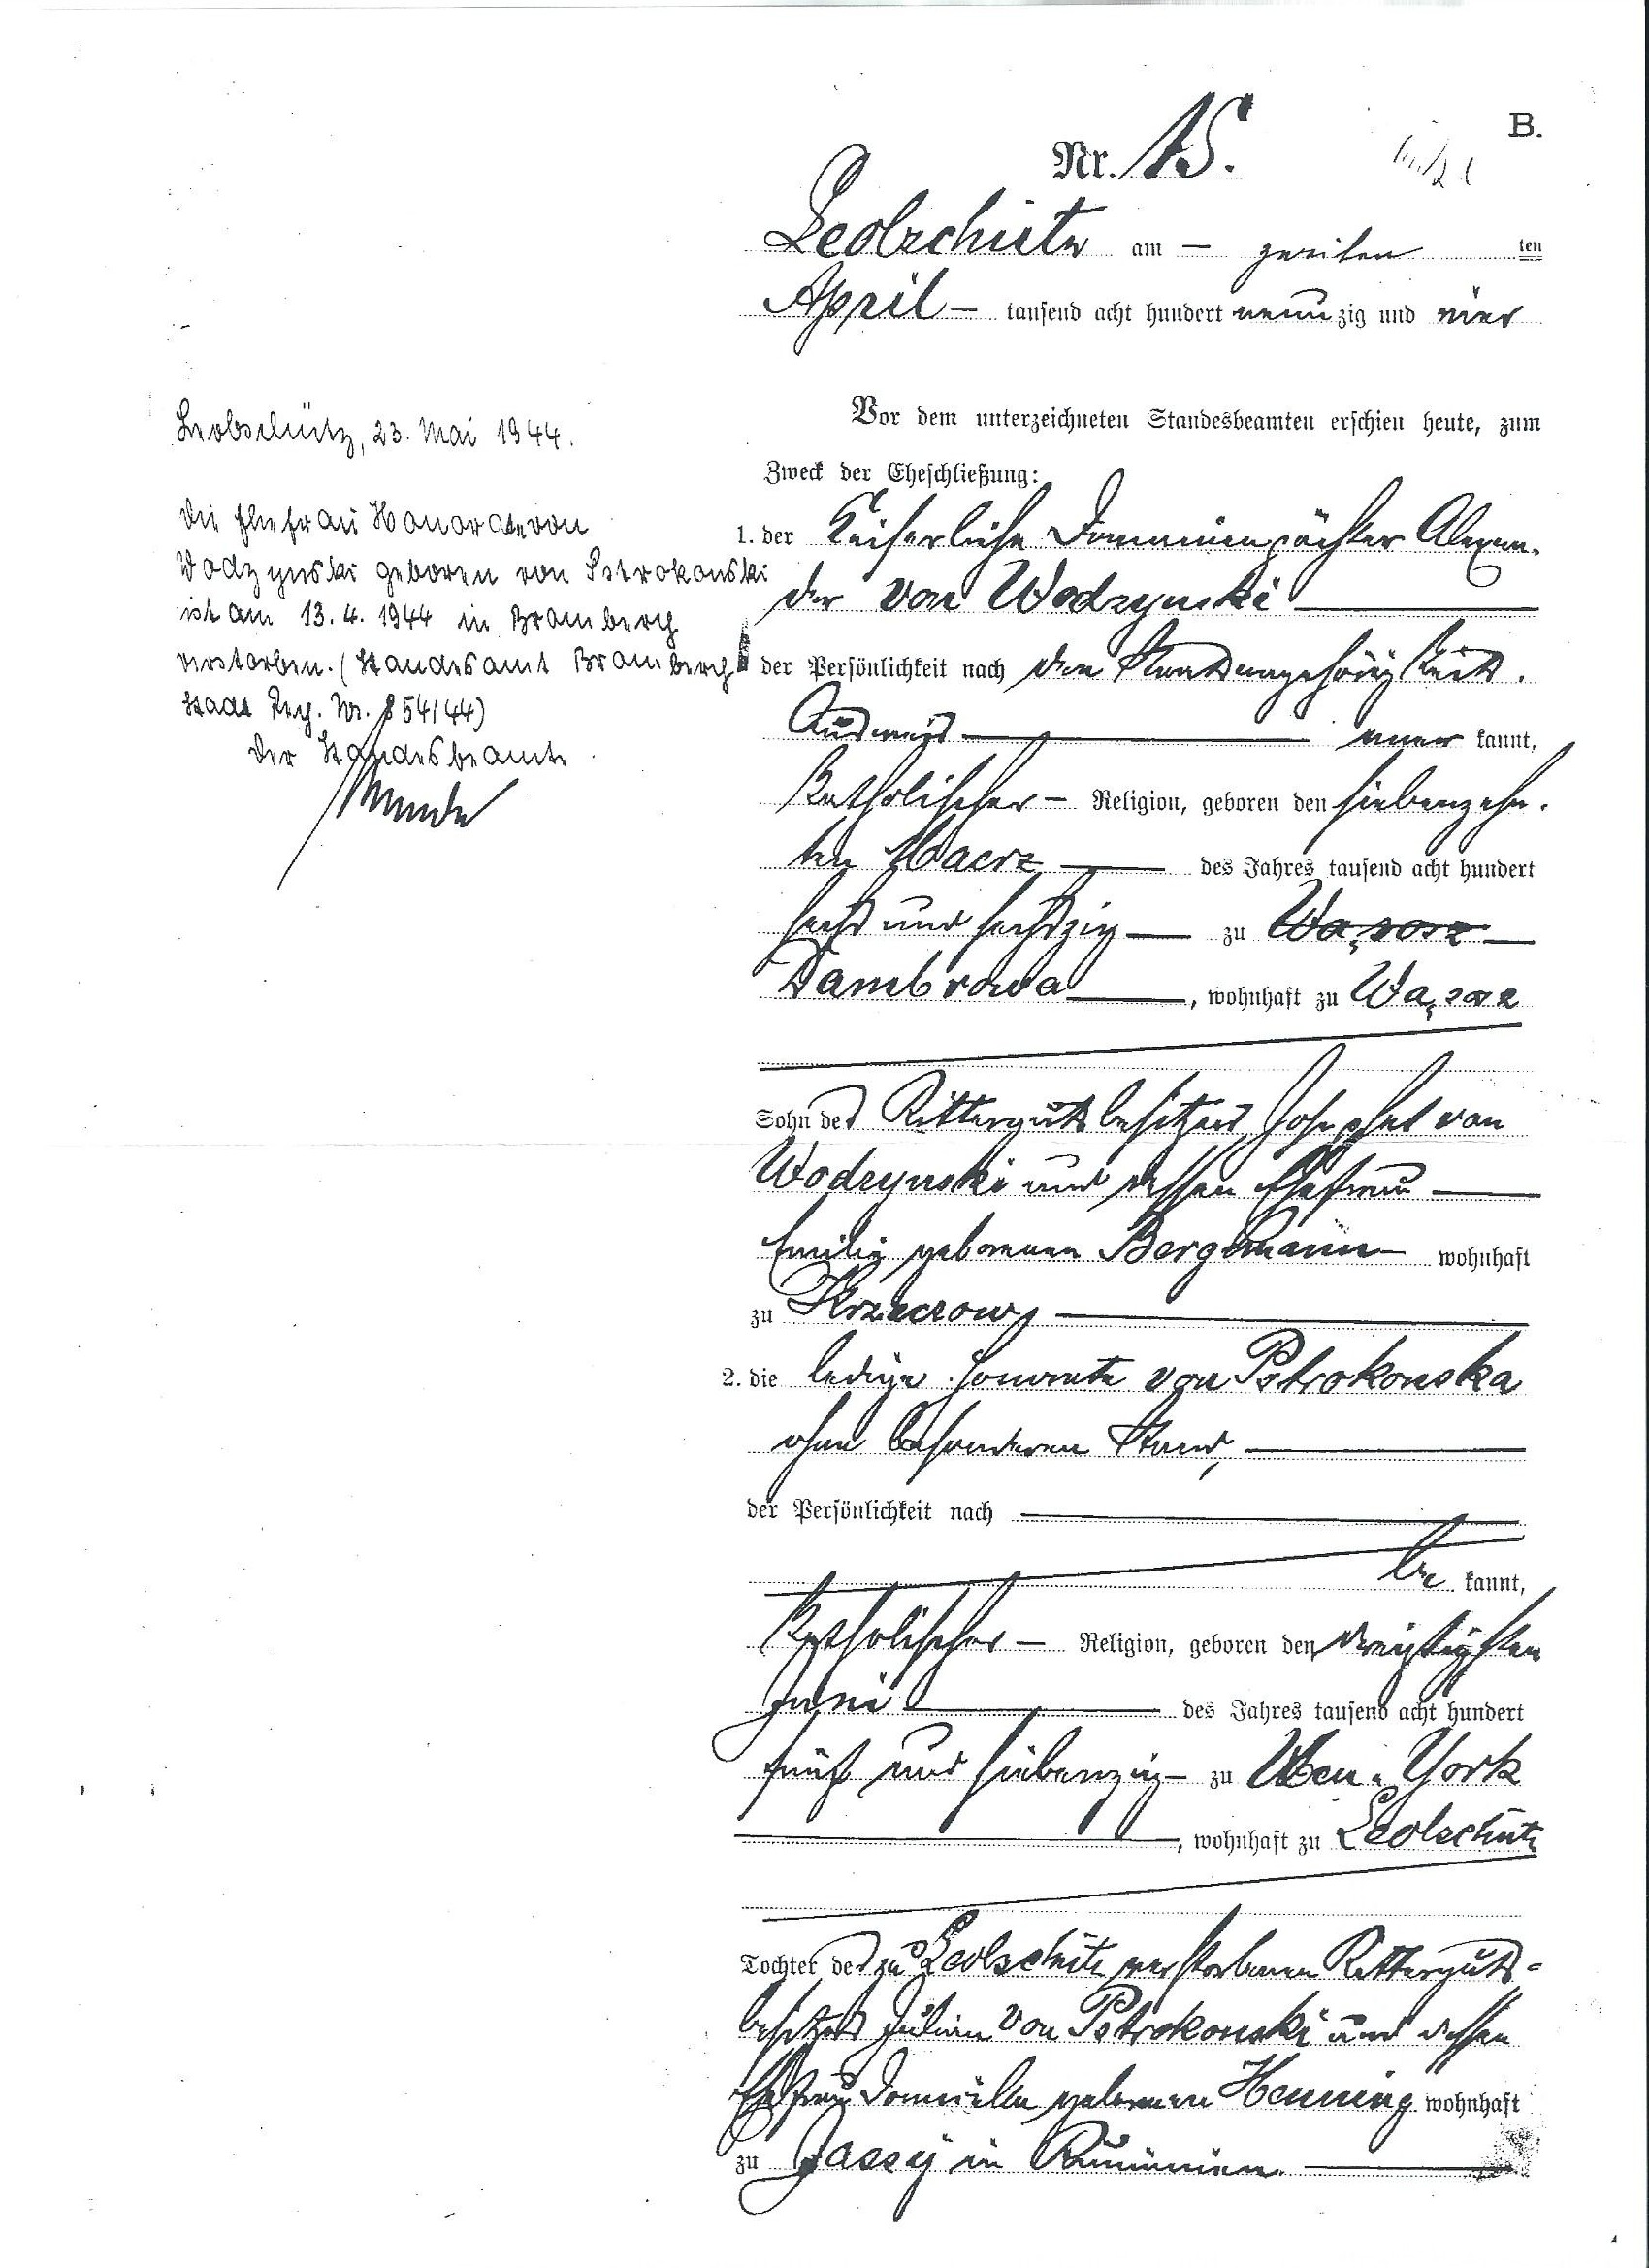 B.
Nr. 15.
Leobschütz am — zweiten ten
April — tausend acht hundert neunzig und vier
Vor dem unterzeichneten Standesbeamten erschien heute, zum
Zweck der Eheschließung:
1. der Kaiserliche Domainenpächter Alexan-
der von Wodzynski
der Persönlichkeit nach den Staatsangehörigkeits-
Ausweis aner kannt,
katholischer — Religion, geboren den siebenzehn-
ten Maerz des Jahres tausend acht hundert
sechs und sechszig zu Wąsosz
Dambrowa, wohnhaft zu Wąsosz
Sohn des Rittergutsbesitzers Josephat von
Wodzynski und dessen Ehefrau
Emilie geborenen Bergmann wohnhaft
zu
2. die ledige Honorata von Pstrokonska
ohne besonderen Stand,
der Persönlichkeit nach
be kannt,
katholischer — Religion, geboren den dreißigsten
Juni des Jahres tausend acht hundert
fünf und siebenzig — zu New-York
, wohnhaft zu Leobschütz
Tochter des zu Leobschütz verstorbenen Ritterguts-
besitzers Julian von Pstrokonski und dessen
Ehefrau geborenen Henning wohnhaft
zu Jassy in Rumänien.
Leobschütz, 23. Mai 1944.
Die Ehefrau Honorata von
Wodzynski geboren von Pstrokonski
ist am 13.4.1944 in Bromberg
verstorben. (Standesamt Bromberg
Stadt Reg. Nr. 854/44)
Der Standesbeamte